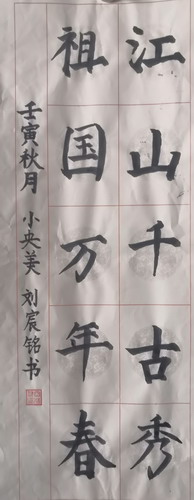 江山千古秀
祖国万年春
壬寅秋月 小央美 刘宸铭书